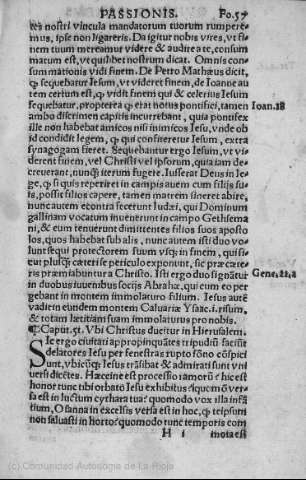 PASSIONIS. Fo. 57
tes nostri vincula mandatorum tuorum rumpere-
mus, ipse non ligareris. Da igitur nobis vires, vt fi
nem tuum mereamur videre & audire a te, consum
matum est, vt quilibet nostrum dicat. Omnis con-
sum mationis vidi finem. De Petro Mathæus dicit,
ꝙ sequebatur Iesum, vt videret finem, de Ioanne au
tem certum est, ꝙ vidit finem qui & celerius Iesum
sequebatur, propterea ꝙ erat notus pontifici, tamen Ioan. 18
ambo discrimen capitis incurrebant, quia pontifex
ille non habebat amicos nisi inimicos Iesu, vnde ob
id condidit legem, ꝙ qui confiteretur Iesum, extra
synagogam fieret. Sequebantur ergo Iesum, vt vi-
derent finem, vel Christi vel ipsorum, quia iam de-
creuerant, nunꝗ̃ iterum fugere. Iusserat Deus in le-
ge, ꝙ si quis reperiret in campis auem cum filijs su-
is, possit filios capere, tamen matrem sineret abire,
nunc autem econtra fecerunt Iudæi, qui Dominum
gallinam vocatum inuenerunt in campo Gethsema
ni, & eum tenuerunt dimittentes filios suos aposto
los, quos habebat sub alis, nunc autem isti duo vo-
lunt sequi protectorem suum vsꝗ; in finem, quisi-
cut plusꝗ̃ cæteri se periculo exponunt, sic præ cæte-
ris præmiabuntur a Christo. Isti ergo duo signãtur Gene. 22. a
in duobus iuuenibus socijs Abrahæ, qui cum eo per
gebant in montem immolaturo filium. Iesus autẽ
vadit in eundem montem Caluariæ Ysaac .i. risum,
& totam lætitiam suam immolaturus pro nobis.
¶ Caput. 51. Vbi Christus ducitur in Hierusalem.
SIc ergo ciuitati appropinquãtes tripudiũ faciũt
delatores Iesu per fenestras rupto sõno cõspici
unt, vbicũꝗ; Iesus trãsibat & admirati sunt vni
versi dicẽtes. Hæccine est processio ramorũ & hic est
honor tunc tibi orbato Iesu exhibitus? quomõ ver-
sa est in luctum cythara tua? quomodo vox illa infã
tium, Osanna in excelsis versa est in hoc, ꝙ teipsum
non saluasti in horto? quomodo tunc temporis com
H i mota est
(c) Comunidad Autónoma de La Rioja